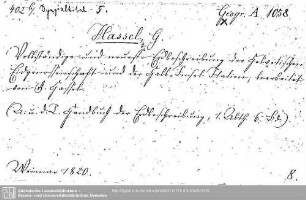 402 9, Spezialtitel. F.
Geogr. A 1058
Hassel, G.
Vollständige und neueste Erdbeschreibung der Helvetischen
Eidgenossenschaft und der Halb-Insel Italien, bearbeitet
von G. Hassel.
(A. u. d. T. Handbuch der Erdbeschreibung, 1. Abth. 6. Bd.)
Weimar 1820.
8.
Sächsische Landesbibliothek -
Staats- und Universitätsbibliothek Dresden